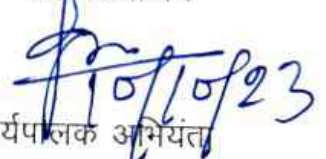 10/10/23
र्यपालक अभियंता